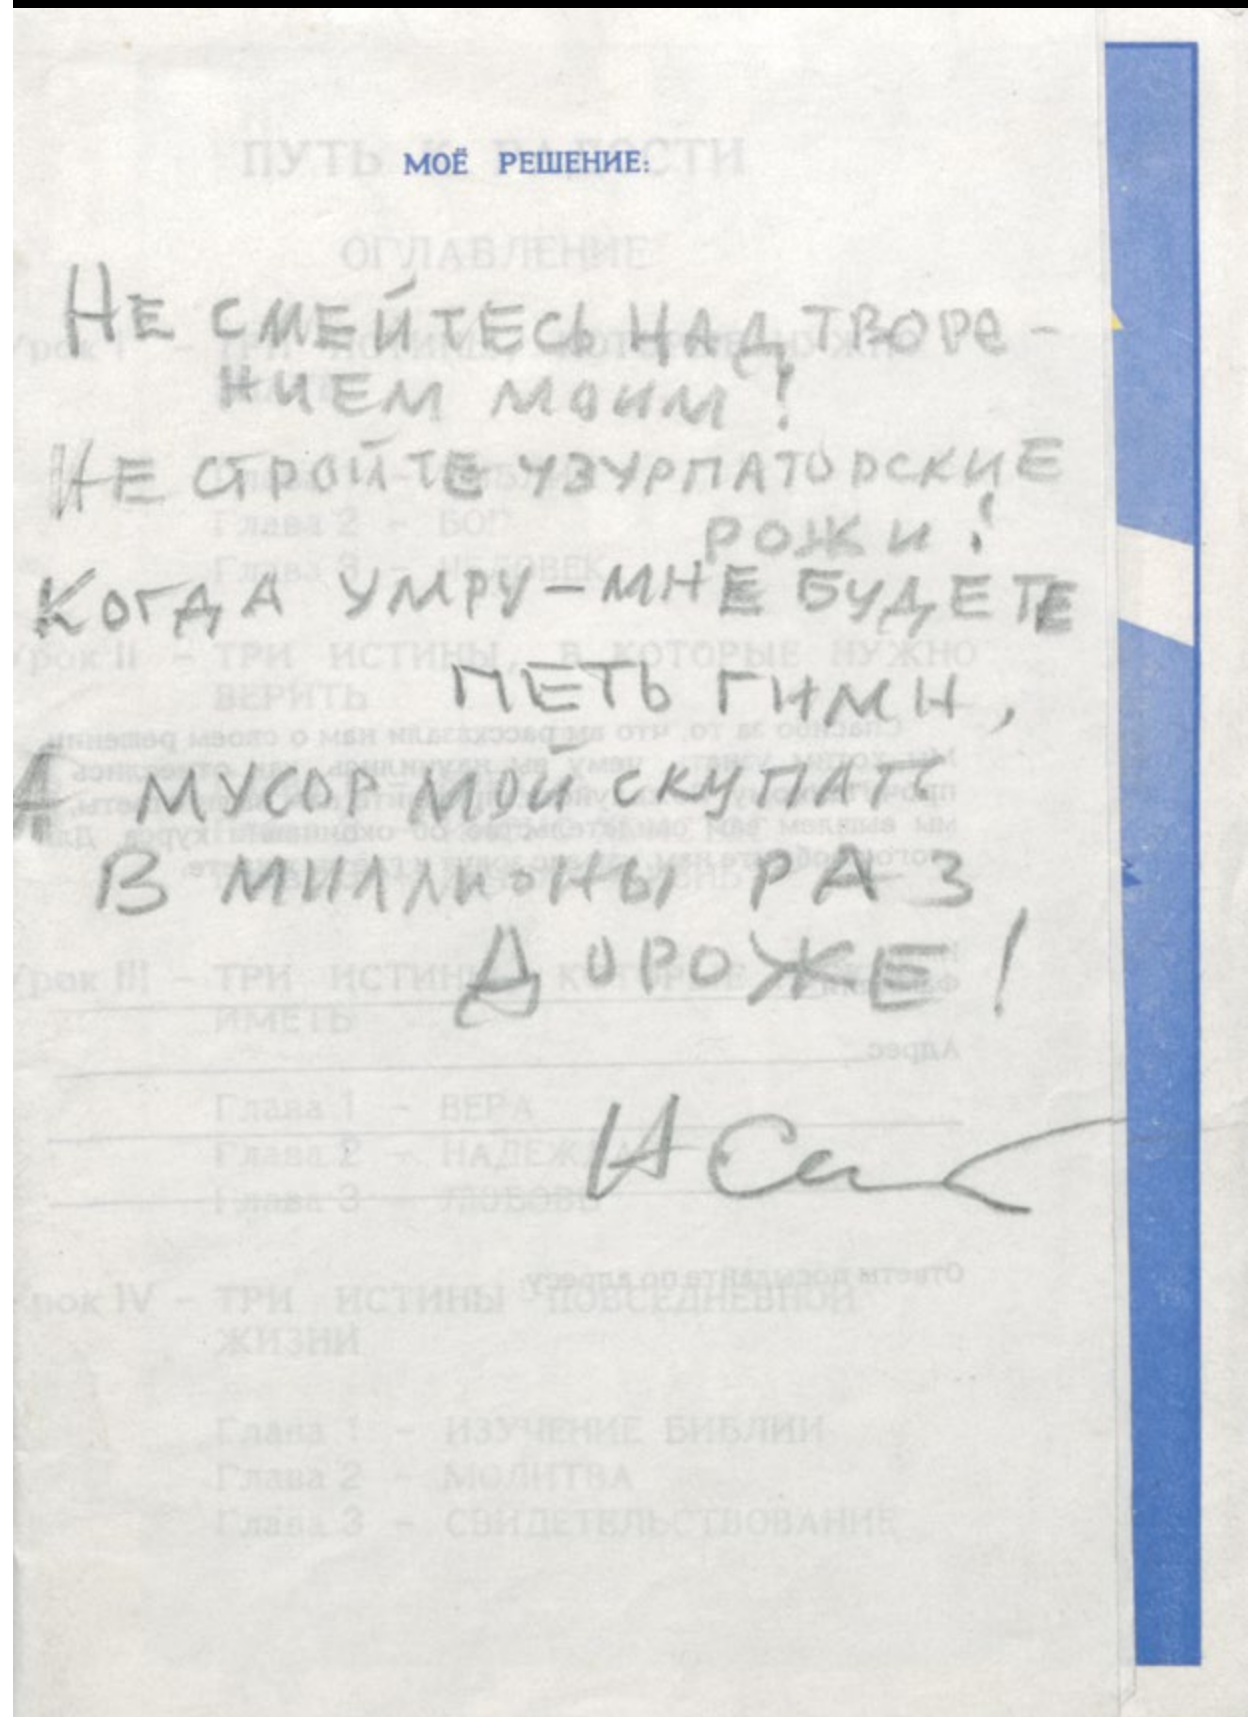 МОЁ РЕШЕНИЕ:
НЕ СМЕЙТЕСЬ НАД ТВОРЕ-
НИЕМ МОИМ!
НЕ СТРОЙТЕ УЗУРПАТОРСКИЕ
РОЖИ!
КОГДА УМРУ – МНЕ БУДЕТЕ
ПЕТЬ ГИМН,
А МУСОР МОЙ СКУПАТЬ
В МИЛЛИОНЫ РАЗ
ДОРОЖЕ!